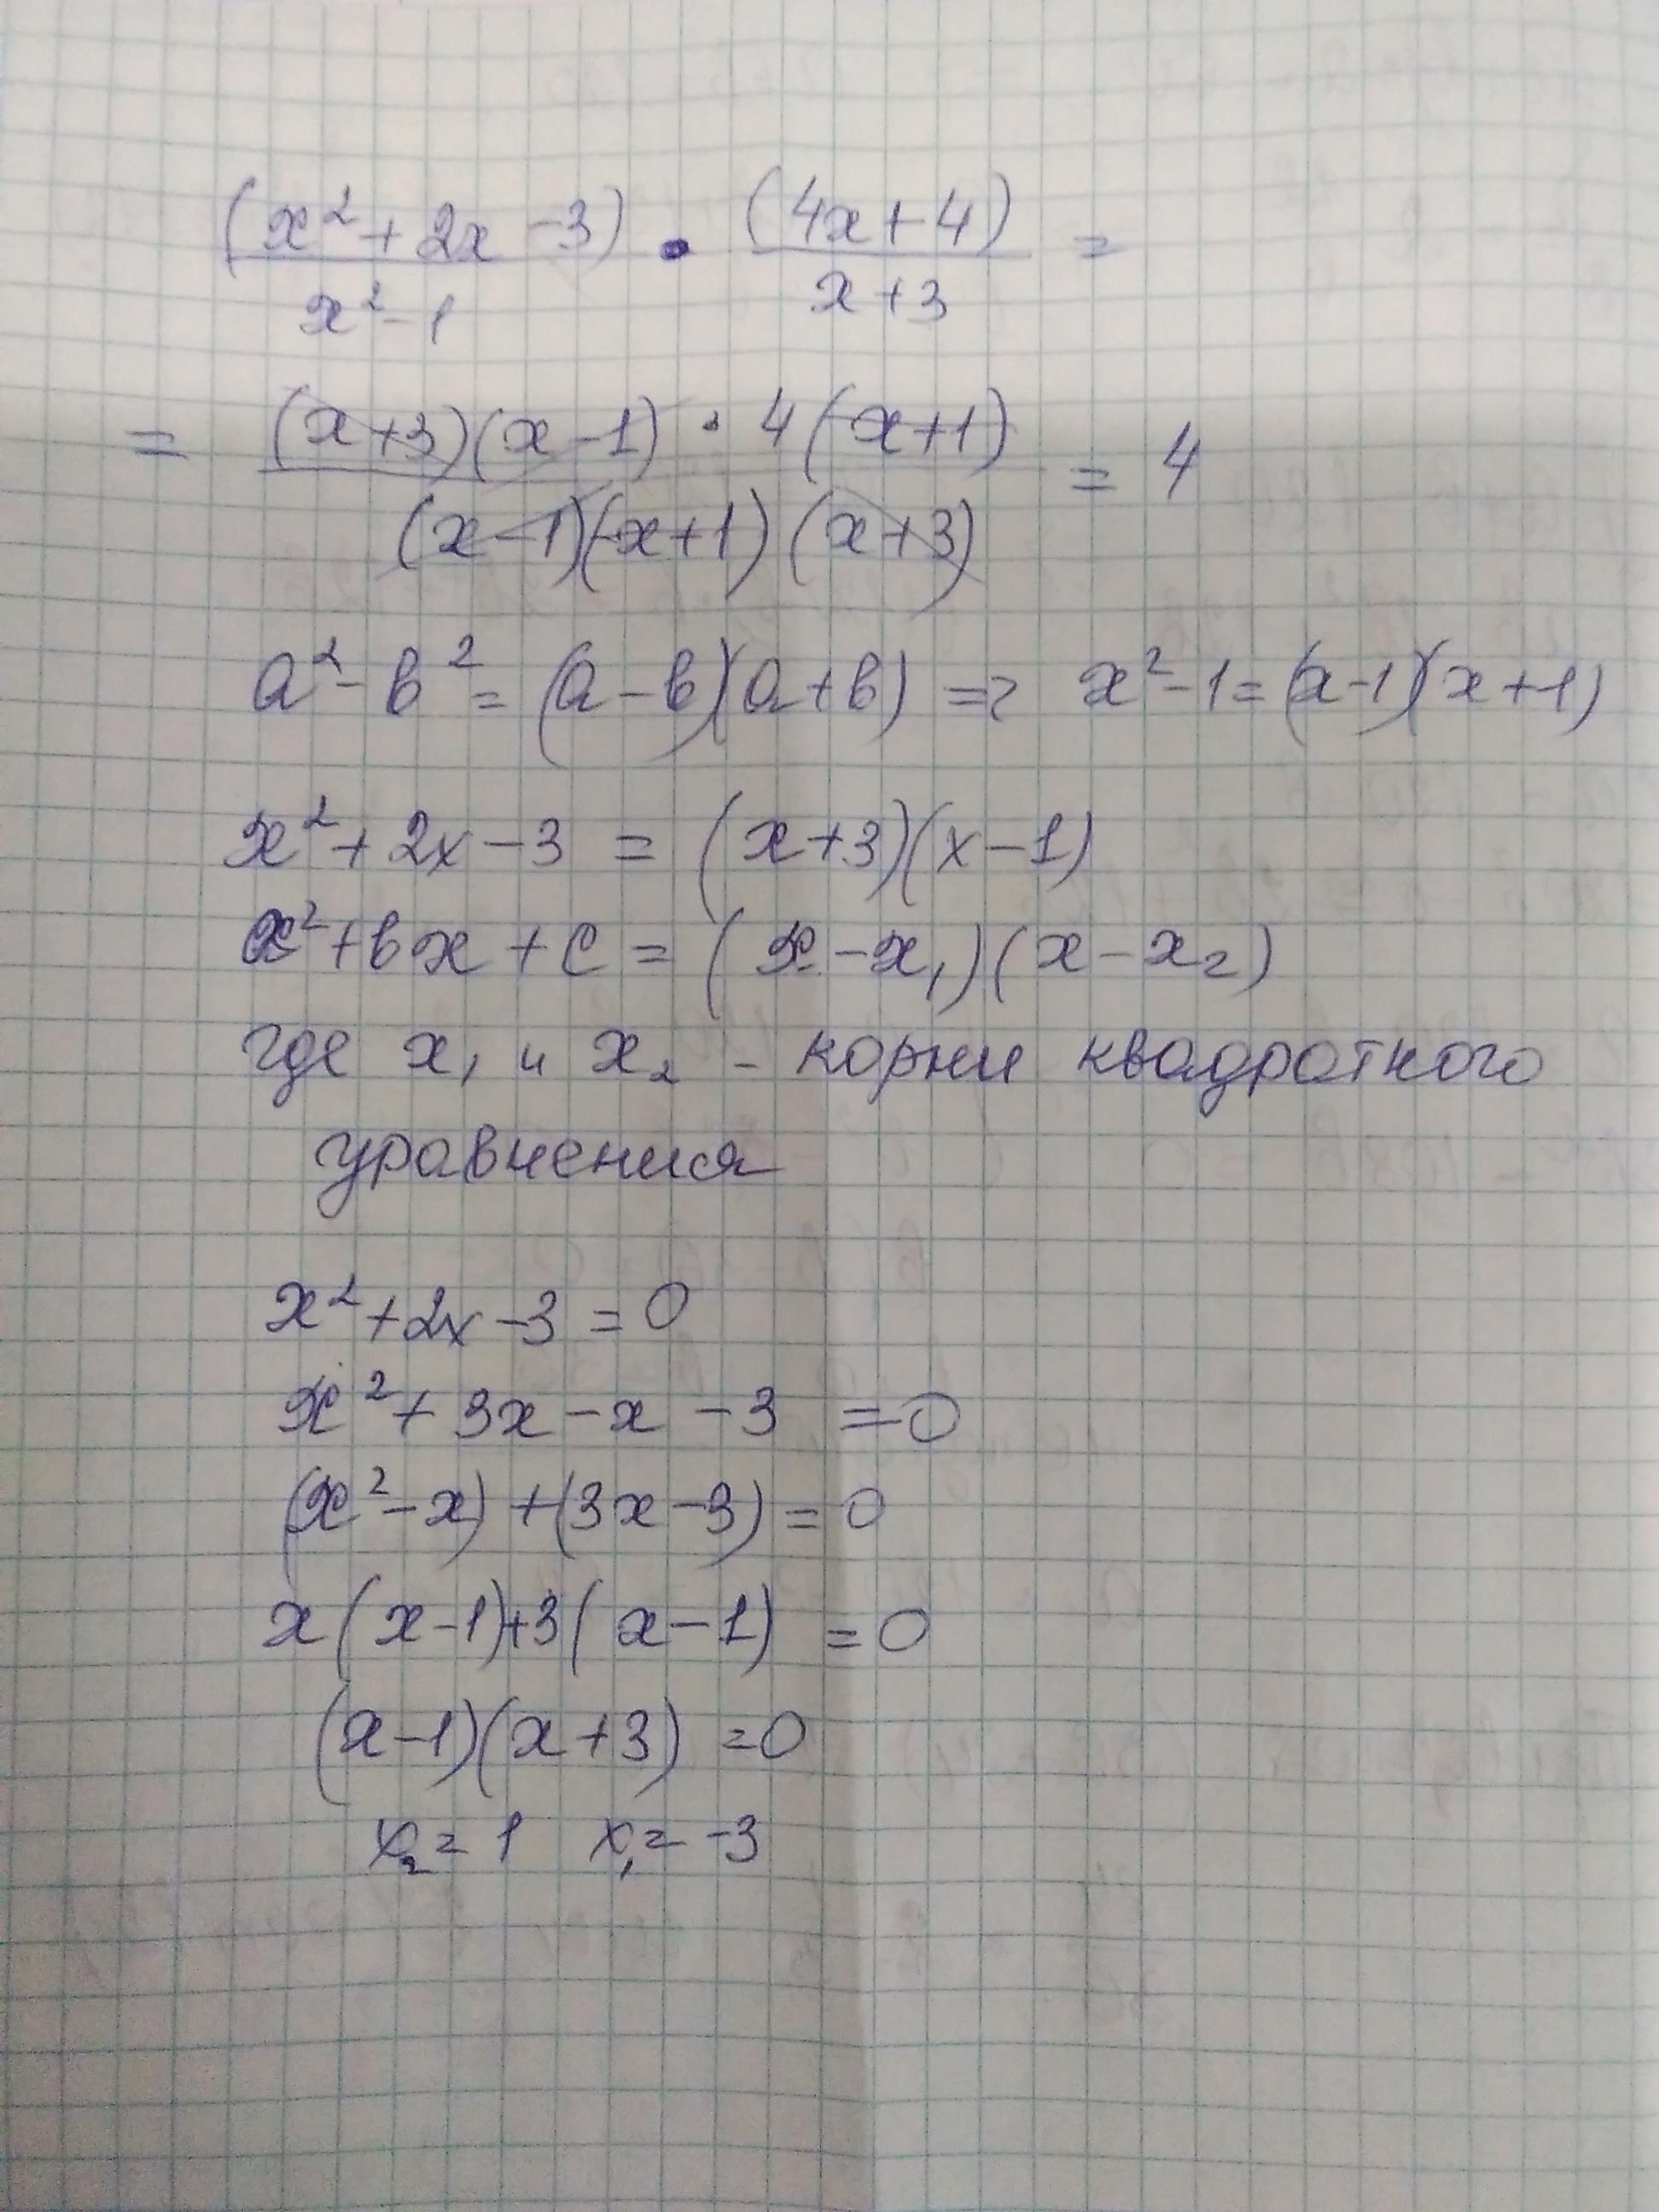 (x² + 2x - 3) / (x² - 1) • (4x + 4) / (x + 3) =
= (x + 3)(x - 1) · 4(x + 1) / (x - 1)(x + 1)(x + 3) = 4
a² - b² = (a - b)(a + b) => x² - 1 = (x - 1)(x + 1)
x² + 2x - 3 = (x + 3)(x - 1)
x² + bx + c = (x - x₁)(x - x₂)
где x₁ и x₂ - корни квадратного
уравнения
x² + 2x - 3 = 0
x² + 3x - x - 3 = 0
(x² - x) + (3x - 3) = 0
x(x - 1) + 3(x - 1) = 0
(x - 1)(x + 3) = 0
x₂ = 1 x₁ = -3